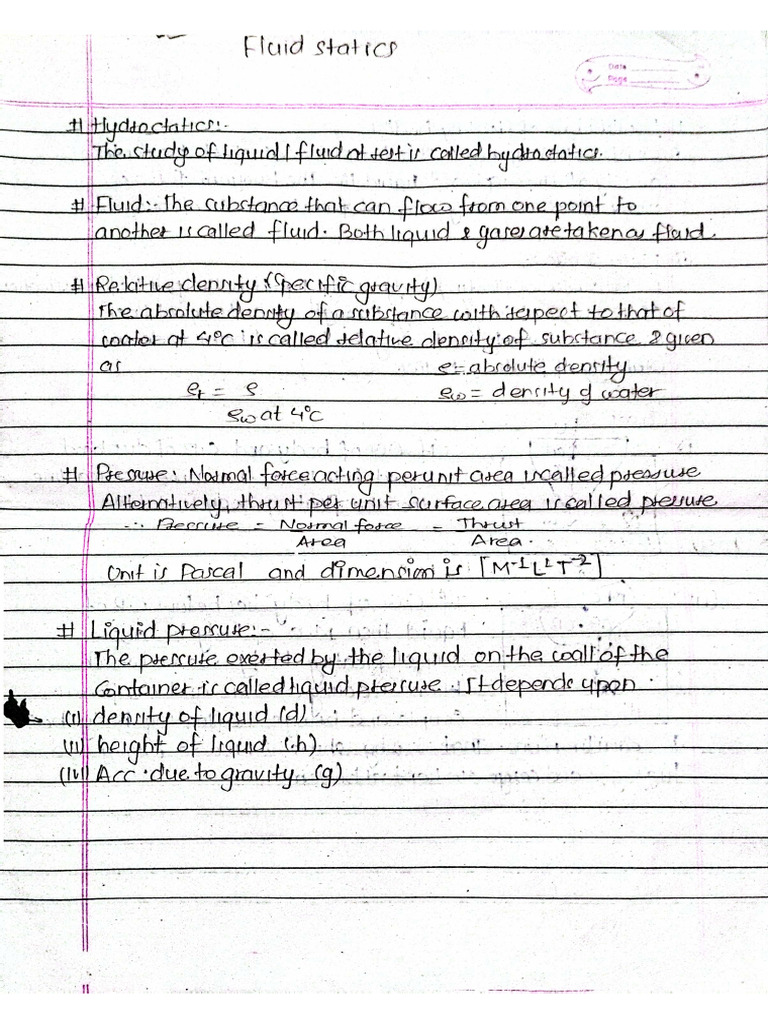 Fluid statics
Date
Page
# Hydrostatics:-
The study of liquid / fluid at rest is called hydrostatics.
# Fluid:- The substance that can flow from one point to
another is called fluid. Both liquid & gases are taken as fluid.
# Relative density (specific gravity)
The absolute density of a substance with respect to that of
water at 4°c is called relative density of substance & given
as ρ = absolute density
ρr = ρ ρω = density of water
ρω at 4°c
# Pressure: Normal force acting per unit area is called pressure
Alternatively, thrust per unit surface area is called pressure
∴ Pressure = Normal force = Thrust
Area Area.
Unit is Pascal and dimension is [M⁻¹L¹T⁻²]
# Liquid pressure:-
The pressure exerted by the liquid on the wall of the
Container is called liquid pressure. It depends upon
(i) density of liquid (d)
(ii) height of liquid (h)
(iii) Acc. due to gravity (g)